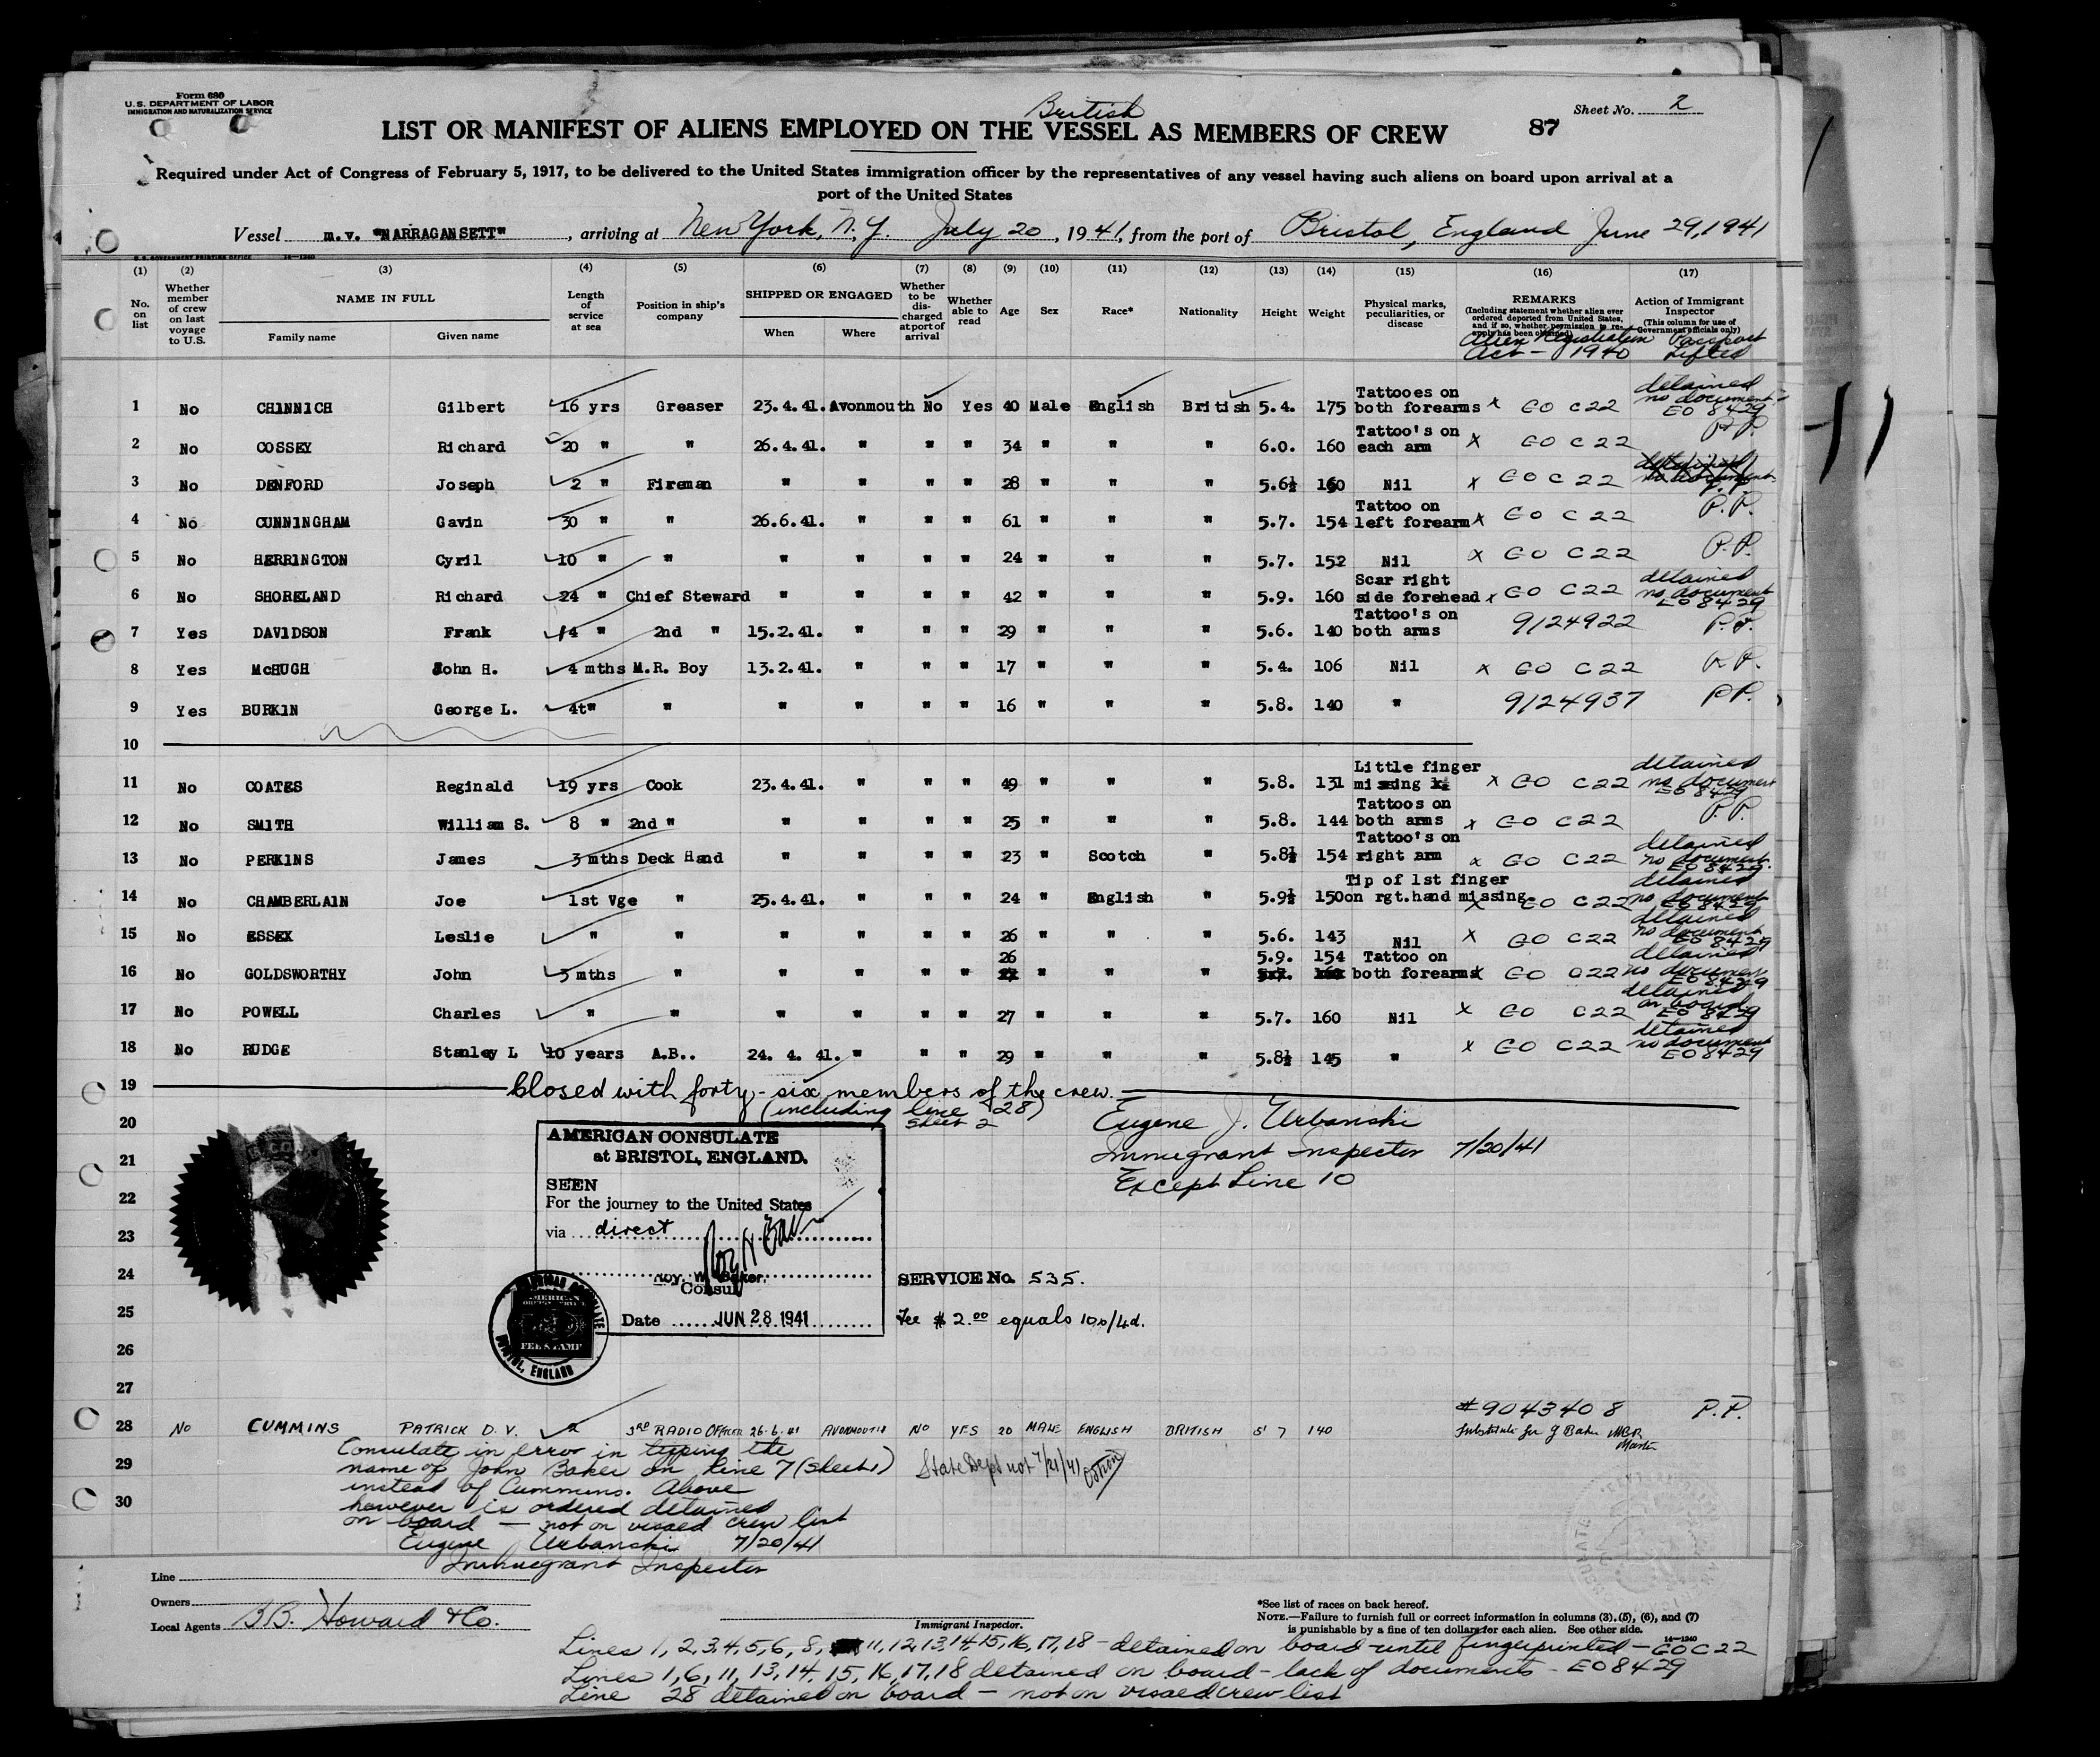 Form 680
U.S. DEPARTMENT OF LABOR
IMMIGRATION AND NATURALIZATION SERVICE
Sheet No. 2
British
LIST OR MANIFEST OF ALIENS EMPLOYED ON THE VESSEL AS MEMBERS OF CREW
87
Required under Act of Congress of February 5, 1917, to be delivered to the United States immigration officer by the representatives of any vessel having such aliens on board upon arrival at a
port of the United States
Vessel m.v. "NARRAGANSETT", arriving at New York, N.Y. July 20, 1941, from the port of Bristol, England June 29, 1941
U.S. GOVERNMENT PRINTING OFFICE 14-1240
(1) (2) (3) (4) (5) (6) (7) (8) (9) (10) (11) (12) (13) (14) (15) (16) (17)
No. on list
Whether member of crew on last voyage to U.S.
NAME IN FULL
Family name
Given name
Length of service at sea
Position in ship's company
SHIPPED OR ENGAGED
When
Where
Whether to be discharged at port of arrival
Whether able to read
Age
Sex
Race*
Nationality
Height
Weight
Physical marks, peculiarities, or disease
REMARKS
(Including statement whether alien ever ordered deported from United States, and if so, whether permission to reapply has been obtained)
Alien Registration Act - 1940
Action of Immigrant Inspector
(This column for use of Government officials only)
Passport Lifted
1 No CHINNICH Gilbert 16 yrs Greaser 23.4.41. Avonmouth No Yes 40 Male English British 5.4. 175 Tattooes on both forearms x GO C22 detained no document EO 8429
2 No COSSEY Richard 20 " " 26.4.41. " " " 34 " " " 6.0. 160 Tattoo's on each arm x GO C22 P.P.
3 No DENFORD Joseph 2 " Fireman " " " " 28 " " " 5.6½ 160 Nil x GO C22
4 No CUNNINGHAM Gavin 30 " " 26.6.41. " " " 61 " " " 5.7. 154 Tattoo on left forearm x GO C22 P.P.
5 No HERRINGTON Cyril 10 " " " " " " 24 " " " 5.7. 152 Nil x GO C22 P.P.
6 No SHORELAND Richard 24 " Chief Steward " " " " 42 " " " 5.9. 160 Scar right side forehead x GO C22 detained no document EO 8429
7 Yes DAVIDSON Frank 14 " 2nd " 15.2.41. " " " 29 " " " 5.6. 140 Tattoo's on both arms 9124922 P.P.
8 Yes McHUGH John H. 4 mths M.R. Boy 13.2.41. " " " 17 " " " 5.4. 106 Nil x GO C22 P.P.
9 Yes BURKIN George L. 4t" " " " " " 16 " " " 5.8. 140 " 9124937 P.P.
10
11 No COATES Reginald 19 yrs Cook 23.4.41. " " " 49 " " " 5.8. 131 Little finger missing x GO C22 detained no document EO 8429
12 No SMITH William S. 8 " 2nd " " " " " 25 " " " 5.8. 144 Tattoos on both arms x GO C22 P.P.
13 No PERKINS James 3 mths Deck Hand " " " " 23 " Scotch " 5.8½ 154 Tattoo's on right arm x GO C22 detained no document EO 8429
14 No CHAMBERLAIN Joe 1st Vge " 25.4.41. " " " 24 " English " 5.9½ 150 Tip of 1st finger on rgt.hand missing x GO C22 detained no document EO 8429
15 No ESSEX Leslie " " " " " " 26 " " " 5.6. 143 Nil x GO C22 detained no document EO 8429
16 No GOLDSWORTHY John 3 mths " " " " " 26 " " " 5.9. 154 Tattoo on both forearms x GO C22 detained no document EO 8429
17 No POWELL Charles " " " " " " 27 " " " 5.7. 160 Nil x GO C22 detained on board EO 8429
18 No RUDGE Stanley L 10 years A.B.. 24. 4. 41. " " " 29 " " " 5.8½ 145 " x GO C22 detained no document EO 8429
19 Closed with forty-six members of the crew.
(including line 28) sheet 2
20 Eugene J. Urbanski
AMERICAN CONSULATE
at BRISTOL, ENGLAND.
21 Immigrant Inspector 7/20/41
Except Line 10
SEEN
22 For the journey to the United States
23 via direct
24 Roy. W. Baker.
Consul
SERVICE No. 535.
25 Date JUN 28 1941
Fee $ 2.00 equals 10s/4d.
AMERICAN CONSULATE
AMERICAN
FEE STAMP
BRISTOL, ENGLAND
26
27
#9043408 P.P.
28 No CUMMINS PATRICK D.V. 3RD RADIO OFFICER 26.6.41 AVONMOUTH NO YES 20 MALE ENGLISH BRITISH 5' 7 140 Substitute for J Baker
Master
Consulate in error in typing the
29 name of John Baker on line 7 (sheet 1) State Dept not 7/21/41
instead of Cummins. Above
30 however is ordered detained
on board - not on visaed crew list
Eugene Urbanski 7/20/41
Immigrant Inspector
Line
Owners
Local Agents B.B. Howard & Co.
Immigrant Inspector.
*See list of races on back hereof.
NOTE.—Failure to furnish full or correct information in columns (3), (5), (6), and (7)
is punishable by a fine of ten dollars for each alien. See other side.
14-1240
Lines 1, 2, 3, 4, 5, 6, 8, 11, 12, 13, 14, 15, 16, 17, 18 - detained on board until fingerprinted - GO C22
Lines 1, 6, 11, 13, 14, 15, 16, 17, 18 detained on board - lack of documents - EO 8429
Line 28 detained on board - not on visaed crew list